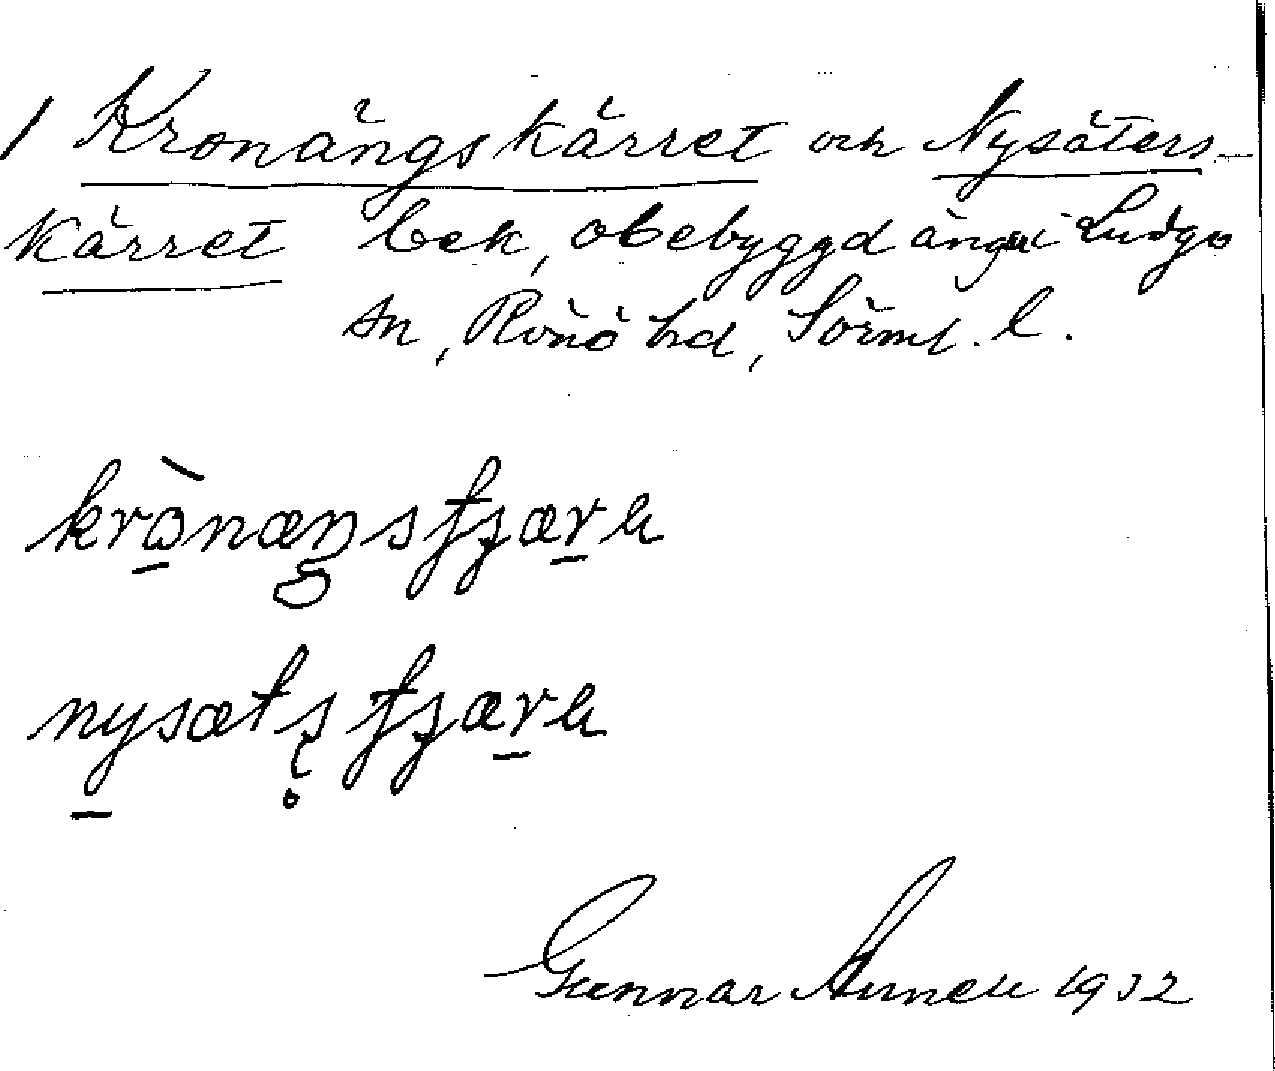 1 Kronängskärret och Nysäters-
kärret bek, obebyggd äng i Ludgo
sn, Rönö hd, Sörml. l.
krònæŋsfjærɐ
nysætsfjærɐ
Gunnar 1932